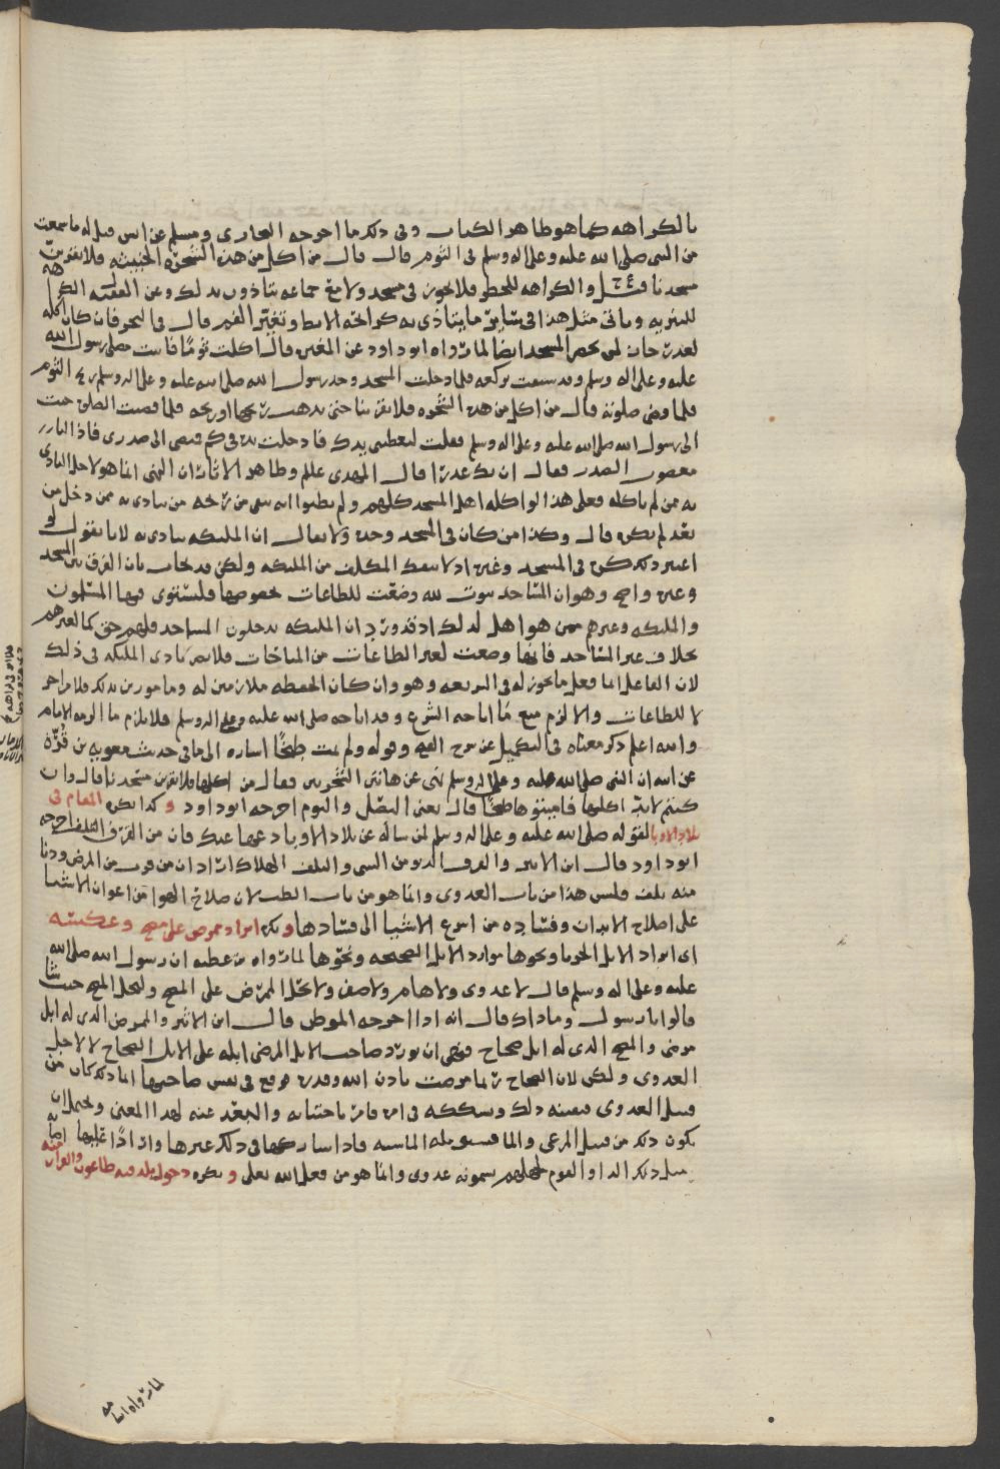 بالكراهه كما هو ظاهر الكتاب وفى ذلك ما اخرجه البخارى ومسلم عن انس قيل له ما سمعت
من النبى صلى الله عليه وعلى اله وسلم فى الثوم قال قال من اكل من هذه الشجره الخبيثه فلا يقربن
مسجدنا قيل والكراهه للحظر فلا يجوز فى مسجد ولا مع جماعه يتاذون بذلك وعن الفقيه الكراهه
للتنزيه وياتى مثل هذا فى سائر ما يتاذى به كرائحه الابط وتغير الفم قال فى البحر فان كان اكله
لعذر جاز لمن يحضر المسجد ايضا لما رواه ابو داود عن المغيره قال اكلت ثوما فاتيت مصلى رسول الله
عليه وعلى اله وسلم وقد سبقت بركعه فلما دخلت المسجد وجد رسول الله صلى الله عليه وعلى اله وسلم ريح الثوم
فلما قضى صلوته قال من اكل من هذه الشجره فلا يقربنا حتى يذهب ريحها او ريحه فلما قضيت الصلوه جيت
الى رسول الله صلى الله عليه وعلى اله وسلم فقلت لتعطينى يدك فادخلت يده فى كم قميصى الى صدرى فاذا انا
معصوب الصدر فقال ان لك عذرا قال المهدى عللم وظاهر الاثار ان النهى انما هو لاجل التاذى
به ممن لم ياكله فعلى هذا لو اكله اهل المسجد كلهم ولم يظنوا انه يبقى من ريحه من يتاذى به ممن دخل من
بعد لم يكره قال وكذا من كان فى المسجد وحده ولا يقال ان المليكه تتاذى به لانا نقول لو
اعتبر ذلك كره فى المسجد وغيره اذ لا ينفك المكلف من المليكه ولكن قد يجاب بان الفرق بين المسجد
وغيره واضح وهو ان المساجد بيوت لله وضعت للطاعات بخصوصها فليستوى فيها المسلمون
والمليكه وغيرهم ممن هو اهل لذلك اذ قد ورد ان المليكه يدخلون المساجد فلهم حق كما لغيرهم
بخلاف غير المساجد فانها وضعت لغير الطاعات من المباحات فلا يضر تاذى المليكه فى ذلك
لان الفاعل انما فعل ما يجوز له فى الشريعه وهو وان كان الحفظه ملازمين له ومامورين بذلك فلا مزاحم
لا للطاعات والا لزم منع ما اباحه الشرع وقد اباحه صلى الله عليه وعلى اله وسلم فلا يلزم ما الزمه الامام
والله اعلم ذكر معناه فى التكميل عن شرح الفتح وقوله ولم يمت طبخا اشاره الى ما فى حديث معويه بن قره
عن ابيه ان النبى صلى الله عليه وعلى اله وسلم نهى عن هاتين الشجرتين فقال من اكلها فلا يقربن مسجدنا قال وان
كنتم لا بد اكليها فاميتوها طبخا قال يعنى البصل والثوم اخرجه ابو داود وكذا يكره المقام فى
بلاد الاوبا لقوله صلى الله عليه وعلى اله وسلم لمن ساله عن بلاد الاوبا دعها عنك فان من القرف التلف اخرجه
ابو داود قال ابن الاثير والقرف الدنو من الشى والتلف الهلاك اراد ان من قرب من المرض ودنا
منه تلف وليس هذا من باب العدوى وانما هو من باب الطب لان صلاح الهوا من اعوان الاشيا
على اصلاح الابدان وفساده من اسرع الاشيا الى فسادها ويكره ايراد ممرض على مصح وعكسه
اى ايراد الابل الجربا ونحوها موارد الابل الصحيحه ونحوها لما رواه بن عطيه ان رسول الله صلى الله
عليه وعلى اله وسلم قال لا عدوى ولا هام ولا صفر ولا يحل الممرض على المصح وليحل المصح حيث شا
قالوا يا رسول وما ذاك قال انه اذا اخرجه الموطى قال ابن الاثير والممرض الذى له ابل
مرضى والمصح الذى له ابل صحاح فنهى ان يورد صاحب الابل المرضى ابله على الابل الصحاح لا لاجل
العدوى ولكن لان الصحاح ربما مرضت باذن الله وقدره فوقع فى نفس صاحبها انما ذلك كان من
قبيل العدوى فيفتنه ذلك ويشككه فى امره فامر باجتنابه والبعد عنه لهذا المعنى ويحتمل ان
يكون ذلك من قبيل المرعى والما فتستوبله الماشيه فاذا شاركها فى ذلك غيرها وارد اذا عليها اصابه
مثل ذلك الدا والقوم لجهلهم يسمونه عدوى وانما هو من فعل الله تعلى ويكره دخول بلد فيه طاعون والفرار منه
لما رواه اسامه